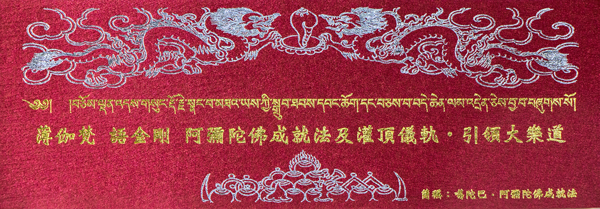 ༄༅། །བཅོམ་ལྡན་འདས་གསུང་རྡོ་རྗེ་སྣང་བ་མཐའ་ཡས་ཀྱི་སྒྲུབ་ཐབས་དབང་ཆོག་དང་བཅས་པ་བདེ་ཆེན་ལམ་འདྲེན་ཅེས་བྱ་བ་བཞུགས་སོ།
薄伽梵 語金剛 阿彌陀佛成就法及灌頂儀軌・引領大樂道
簡稱：噶陀巴・阿彌陀佛成就法